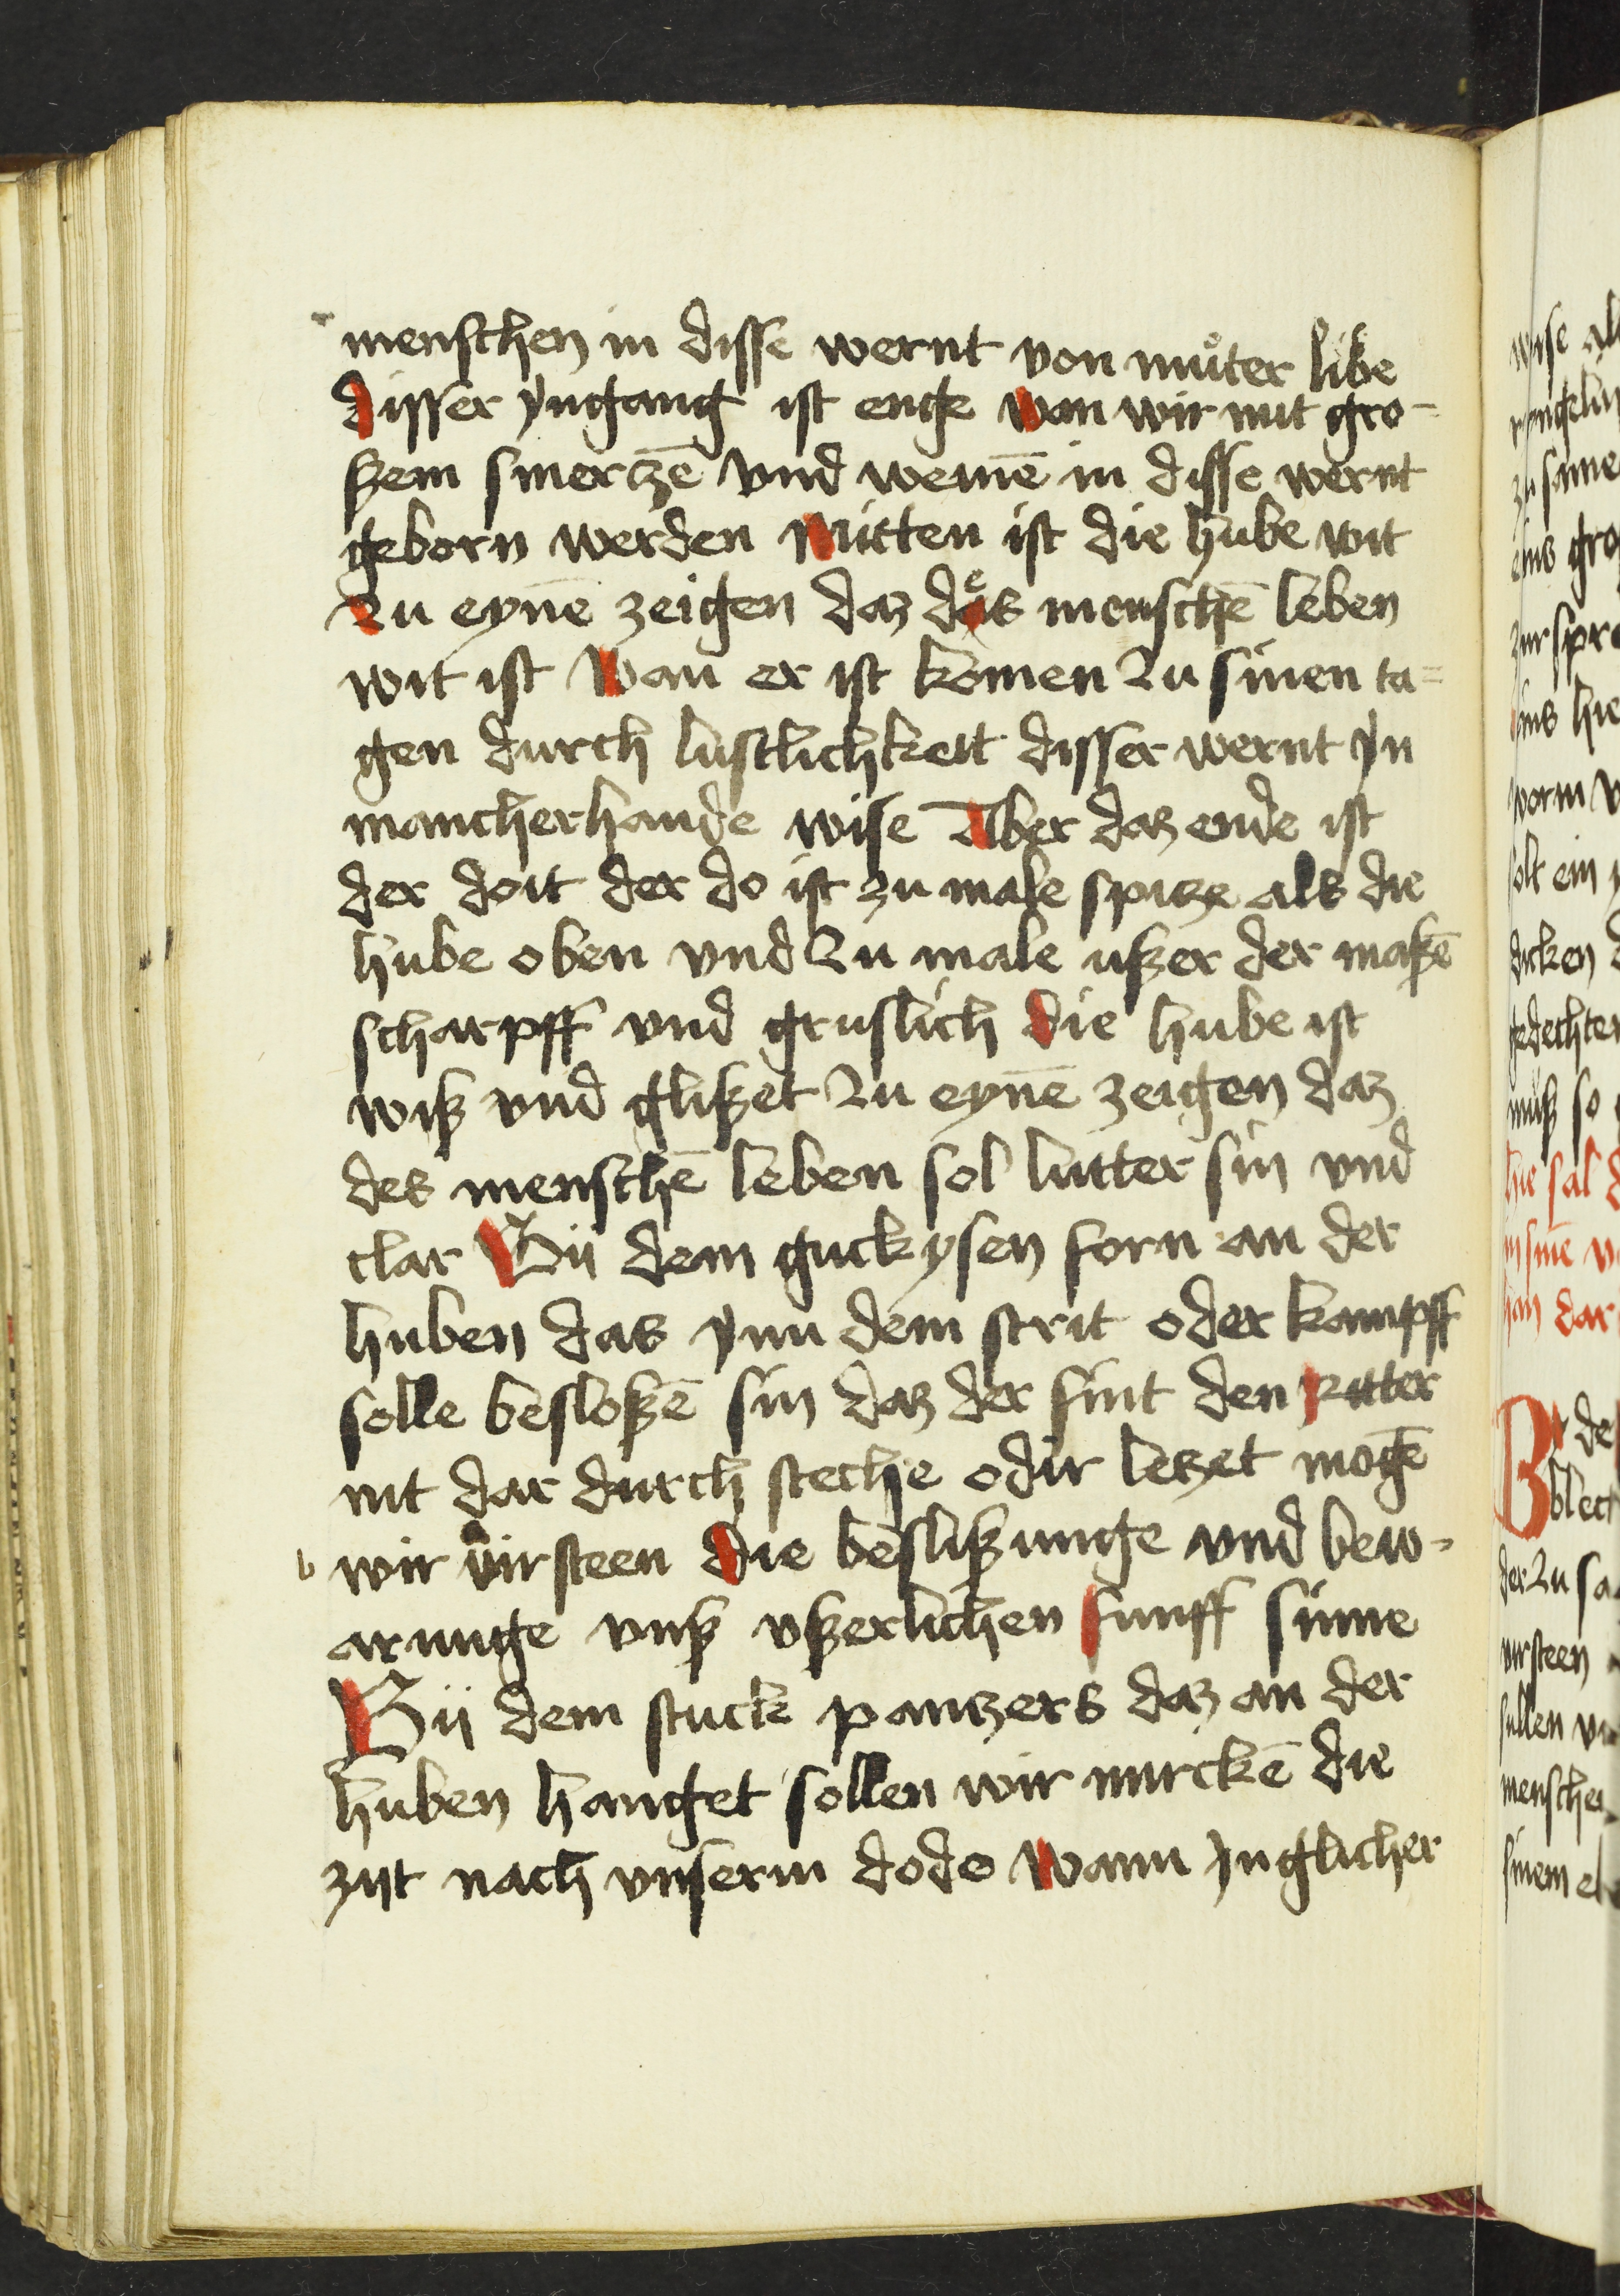 menschen in disse wernt von muͦter libe
disser yngang ist enge wan wir mit gro-
ßem smerczē vnd wemē in disse wernt
geborn werden Mitten ist die hube wit
zu eynē zeigen daz des menschē leben
wit ist wan er ist komen zu sinen ta=
gen durch lustlichkeit disser wernt yn
mancherhande wise Aber daz ende ist
der doit der do ist zu male spitze als die
hube oben vnd zu male ußer der maßē
scharpff vnd gruslich die hube ist
wiß vnd glißet zu eynē zeigen daz
des menschē leben sol lutter sin vnd
clar Bij dem guckysen forn an der
huben das ynn dem strit oder kampff
solle besloßē sin daz der fint den Ritter
nit dar durch steche odir letzet mogē
b wir virsteen die beslißunge vnd bew-
arunge vnß vßerlichen funff sinne
Bij dem stuck pantzers daz an der
huben hanget sollen wir mirckē die
zijt nach vnserm dode Wann ynglicher
wise
zu sime
gro
hie
solt ein
dicken
gedechter
muß so
hie sal
dar
Bi de
blech
der zu sa
virsteen
sullen
menschen
sinem